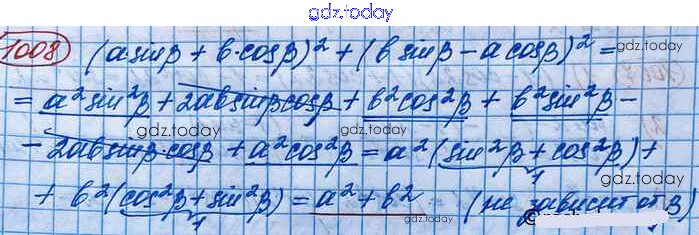 gdz.today
1008 (a sinβ + b·cosβ)² + (b sinβ - a cosβ)² =
gdz.today
= a² sin²β + 2ab sinβ cosβ + b² cos²β + b² sin²β -
gdz.today gdz.today
- 2ab sinβ·cosβ + a² cos²β = a² (sin²β + cos²β) +
1
+ b² (cos²β + sin²β) = a² + b² (не зависит от β)
1
gdz.today